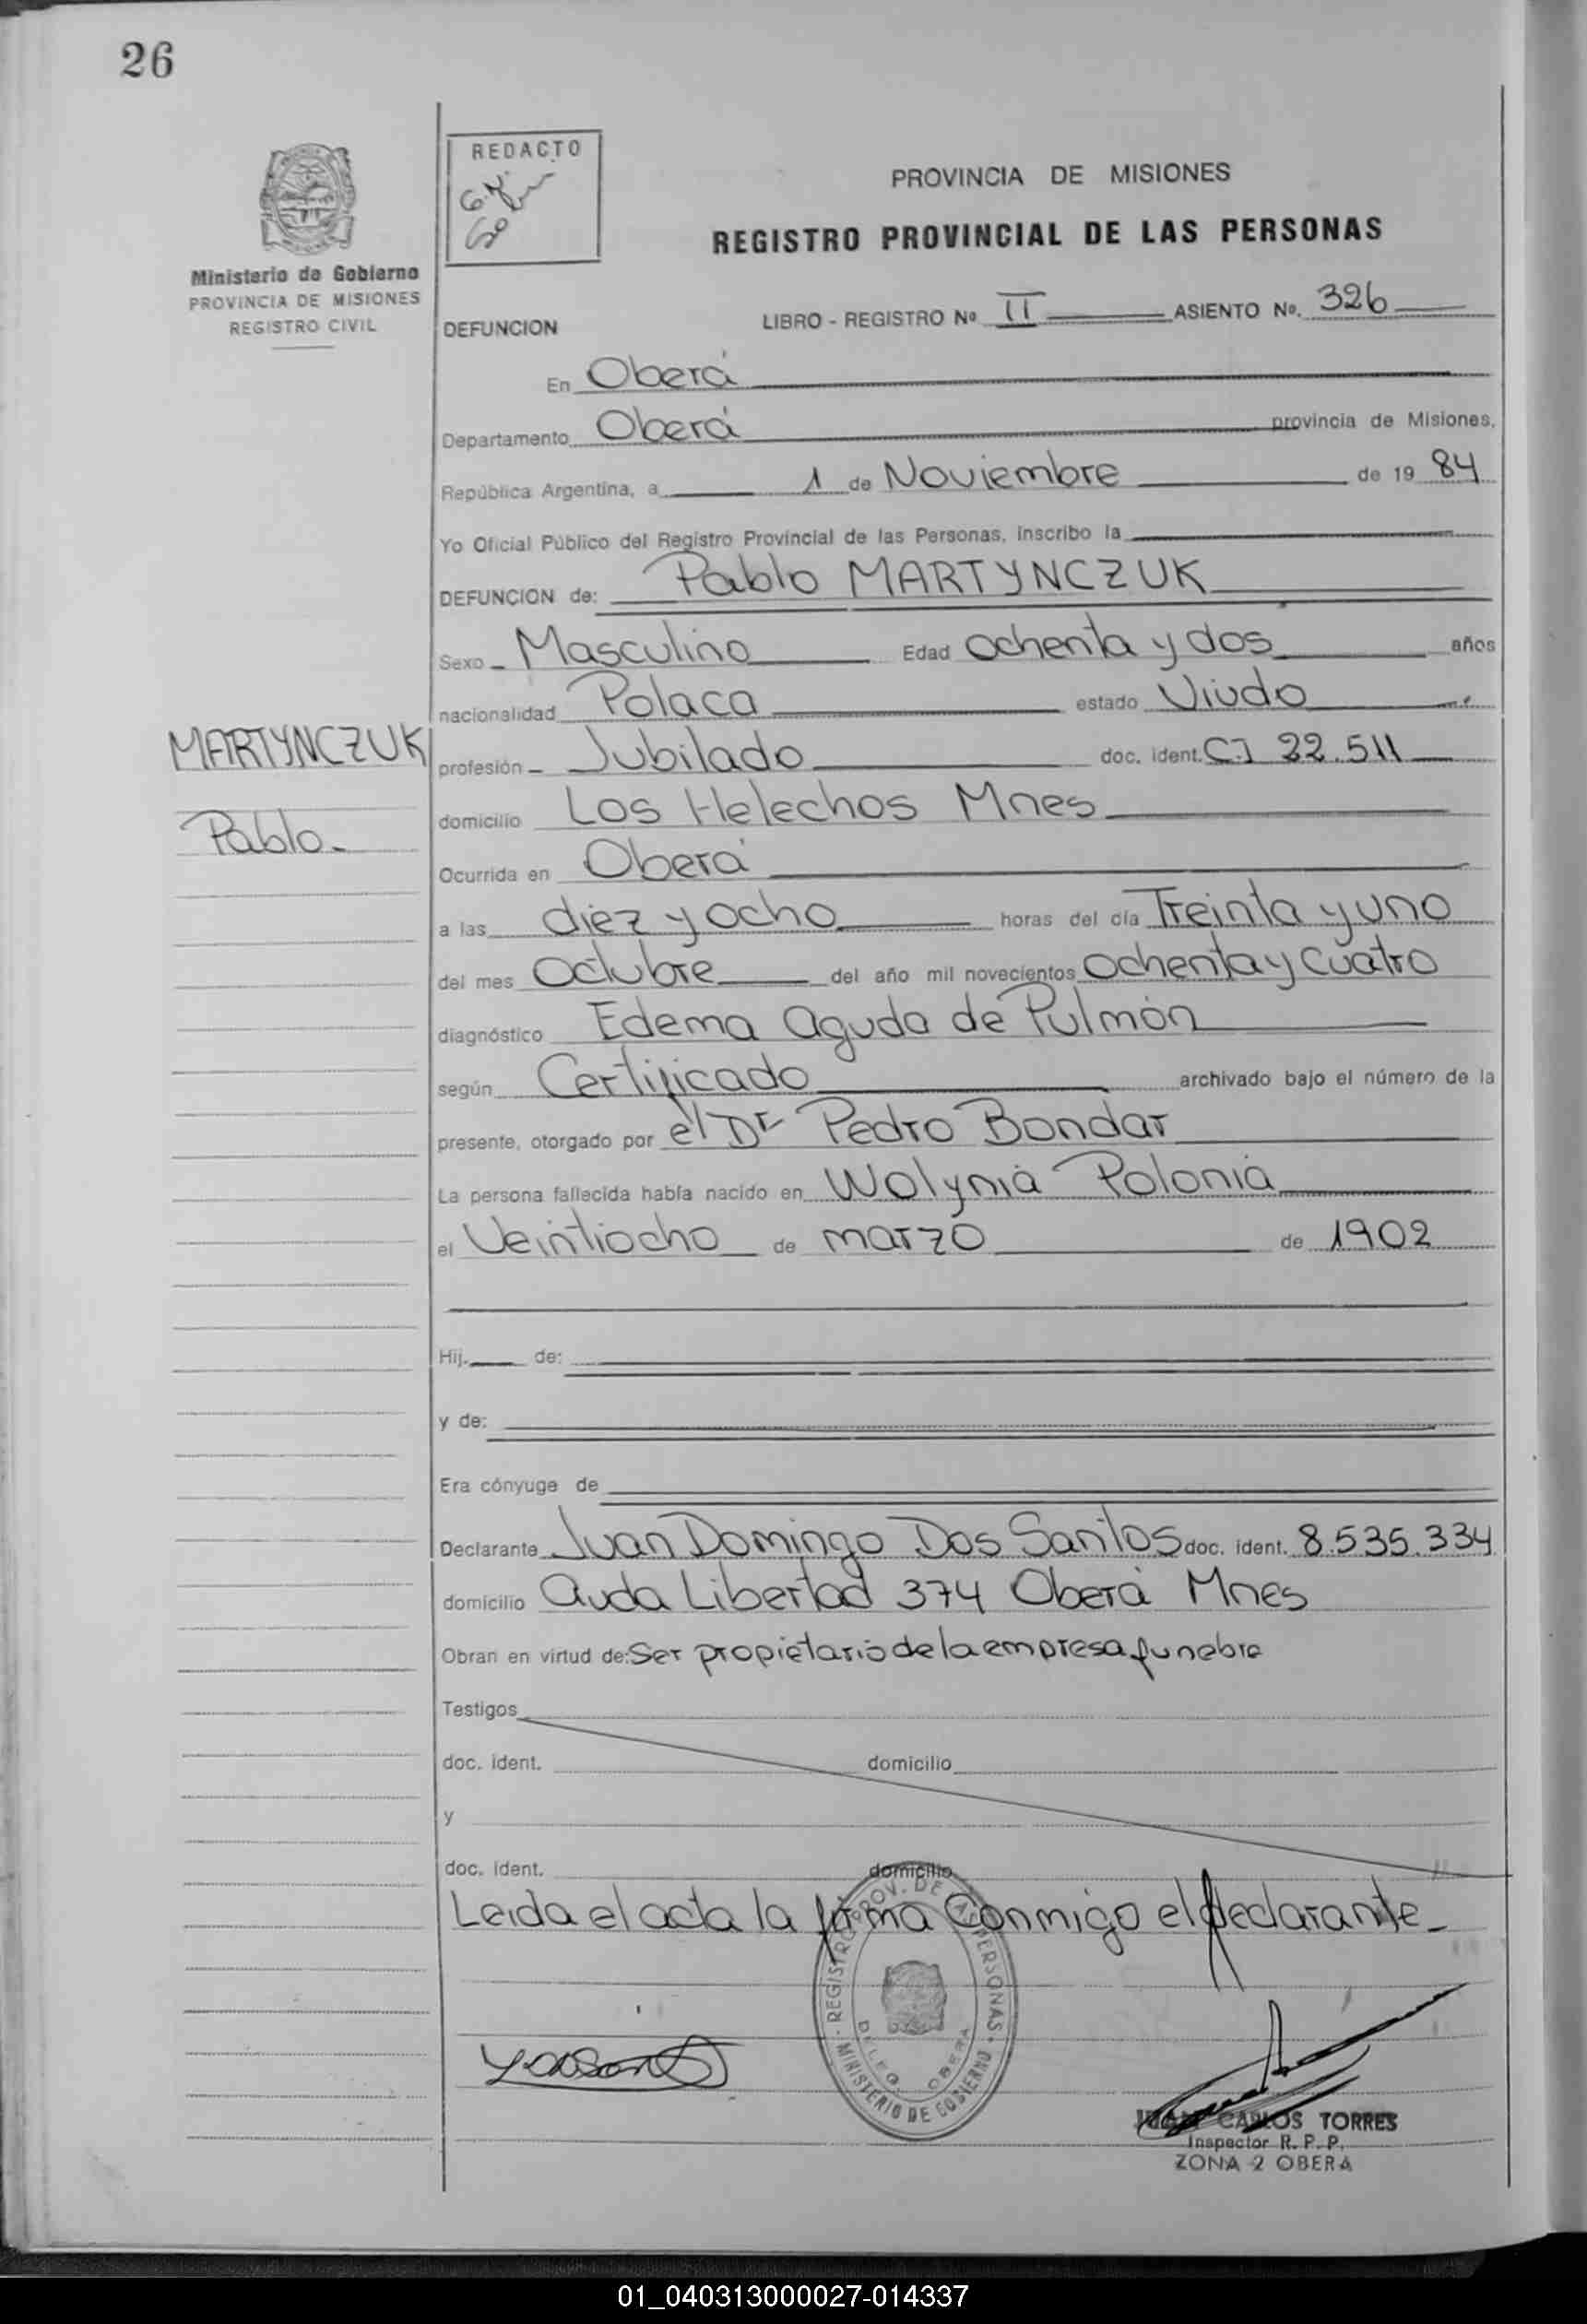 26
Ministerio de Gobierno
PROVINCIA DE MISIONES
REGISTRO CIVIL
REDACTO
PROVINCIA DE MISIONES
REGISTRO PROVINCIAL DE LAS PERSONAS
DEFUNCION LIBRO - REGISTRO Nº II ASIENTO Nº. 326
En Oberá
Departamento Oberá provincia de Misiones,
República Argentina, a 1 de Noviembre de 19 84
Yo Oficial Público del Registro Provincial de las Personas, inscribo la
DEFUNCION de: Pablo MARTYNCZUK
Sexo Masculino Edad Ochenta y dos años
nacionalidad Polaca estado Viudo
MARTYNCZUK
Pablo.
profesión Jubilado doc. ident. C.I 22.511
domicilio Los Helechos Mnes
Ocurrida en Oberá
a las diez y ocho horas del día Treinta y uno
del mes Octubre del año mil novecientos Ochenta y Cuatro
diagnóstico Edema Agudo de Pulmón
según Certificado archivado bajo el número de la
presente, otorgado por el Dr Pedro Bondar
La persona fallecida había nacido en Wolynia Polonia
el Veintiocho de marzo de 1902
Hij. de:
y de:
Era cónyuge de
Declarante Juan Domingo Dos Santos doc. ident. 8.535.334
domicilio Avda Libertad 374 Oberá Mnes
Obran en virtud de: Ser propietario de la empresa funebre
Testigos
doc. ident. domicilio
y
doc. ident. domicilio
Leida el acta la firma Conmigo el declarante
REGISTRO PROV. DE LAS PERSONAS
MINISTERIO DE GOBIERNO
DELEG. OBERA
JUAN CARLOS TORRES
Inspector R. P. P.
ZONA 2 OBERA
01_040313000027-014337